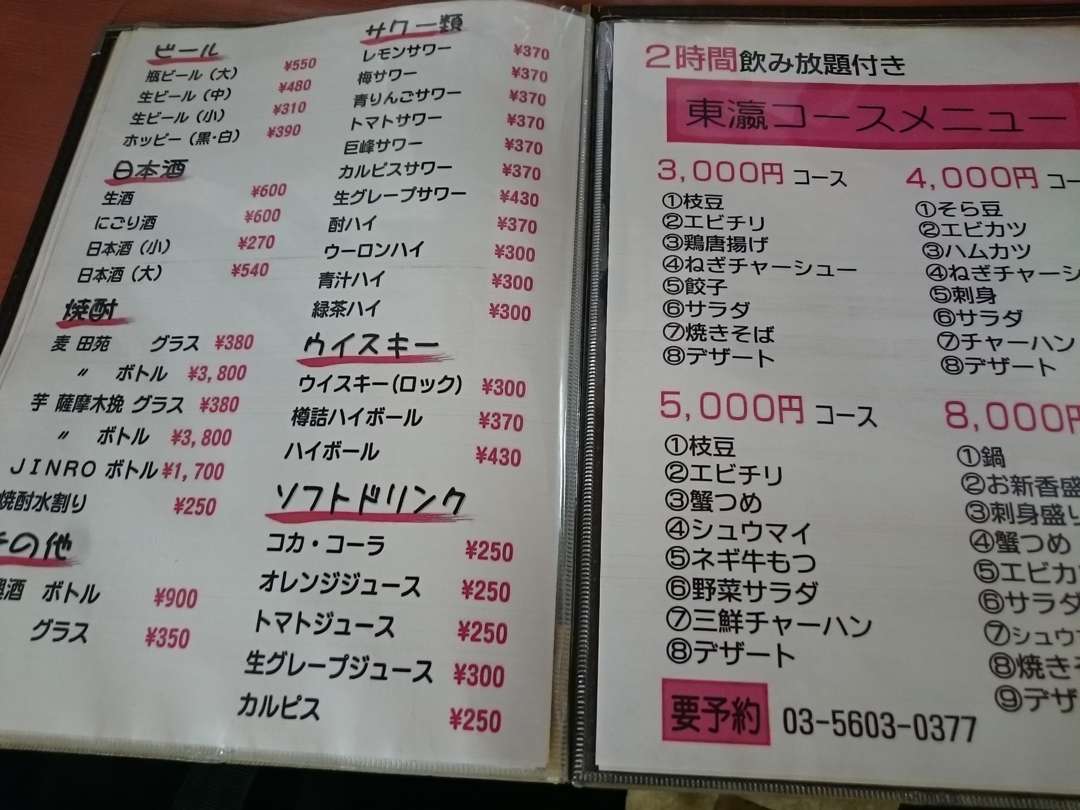 ビール
瓶ビール（大） ¥550
生ビール（中） ¥480
生ビール（小） ¥310
ホッピー（黒・白） ¥390
日本酒
生酒 ¥600
にごり酒 ¥600
日本酒（小） ¥270
日本酒（大） ¥540
焼酎
麦 田苑 グラス ¥380
〃 ボトル ¥3,800
芋 薩摩木挽 グラス ¥380
〃 ボトル ¥3,800
JINRO ボトル ¥1,700
焼酎水割り ¥250
の他
酒 ボトル ¥900
グラス ¥350
サワー類
レモンサワー ¥370
梅サワー ¥370
青りんごサワー ¥370
トマトサワー ¥370
巨峰サワー ¥370
カルピスサワー ¥370
生グレープサワー ¥430
酎ハイ ¥370
ウーロンハイ ¥300
青汁ハイ ¥300
緑茶ハイ ¥300
ウイスキー
ウイスキー(ロック) ¥300
樽詰ハイボール ¥370
ハイボール ¥430
ソフトドリンク
コカ・コーラ ¥250
オレンジジュース ¥250
トマトジュース ¥250
生グレープジュース ¥300
カルピス ¥250
2時間飲み放題付き
東瀛コースメニュー
3,000円 コース
①枝豆
②エビチリ
③鶏唐揚げ
④ねぎチャーシュー
⑤餃子
⑥サラダ
⑦焼きそば
⑧デザート
4,000円 コー
①そら豆
②エビカツ
③ハムカツ
④ねぎチャーシ
⑤刺身
⑥サラダ
⑦チャーハン
⑧デザート
5,000円 コース
①枝豆
②エビチリ
③蟹つめ
④シュウマイ
⑤ネギ牛もつ
⑥野菜サラダ
⑦三鮮チャーハン
⑧デザート
8,000円
①鍋
②お新香盛
③刺身盛り
④蟹つめ
⑤エビカツ
⑥サラダ
⑦シュウマ
⑧焼きそ
⑨デザ
要予約 03-5603-0377